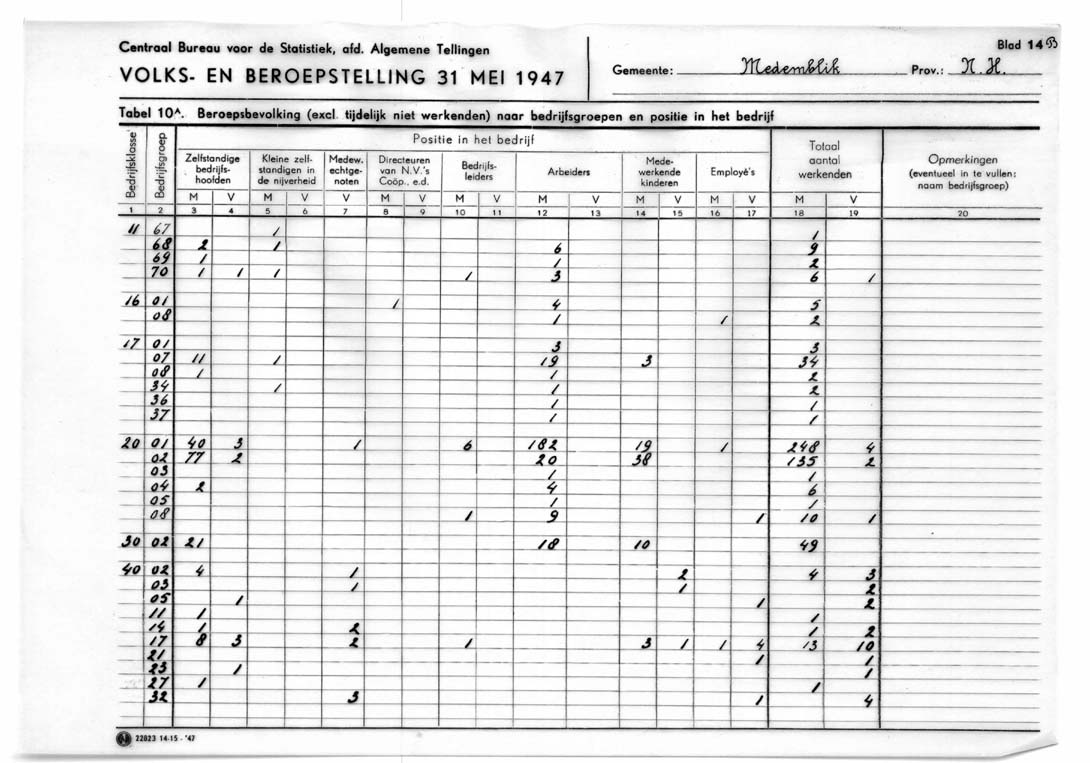 Centraal Bureau voor de Statistiek, afd. Algemene Tellingen
VOLKS- EN BEROEPSTELLING 31 MEI 1947
Gemeente: Medemblik Prov.: N. H.
Blad 14 B
Tabel 10A. Beroepsbevolking (excl. tijdelijk niet werkenden) naar bedrijfsgroepen en positie in het bedrijf
Bedrijfsklasse Bedrijfsgroep Positie in het bedrijf Totaal aantal werkenden Opmerkingen (eventueel in te vullen: naam bedrijfsgroep)
Zelfstandige bedrijfs- hoofden Kleine zelf- standigen in de nijverheid Medew. echtge- noten Directeuren van N.V.'s Coöp., e.d. Bedrijfs- leiders Arbeiders Mede- werkende kinderen Employé's
M V M V V M V M V M V M V M V M V
1 2 3 4 5 6 7 8 9 10 11 12 13 14 15 16 17 18 19 20
11 67 1 1
68 2 1 6 9
69 1 1 2
70 1 1 1 1 3 6 1
16 01 1 4 5
08 1 1 2
17 01 3 3
07 11 1 19 3 34
08 1 1 2
34 1 1 2
36 1 1
37 1 1
20 01 40 3 1 6 182 19 1 248 4
02 77 2 20 38 135 2
03 1 1
04 2 4 6
05 1 1
08 1 9 1 10 1
30 02 21 18 10 49
40 02 4 1 2 4 3
03 1 1 2
05 1 1 2
11 1 1
14 1 2 1 2
17 8 3 2 1 3 1 1 4 13 10
21 1 1
23 1 1
27 1 1
32 3 1 4
22823 14-15 - '47